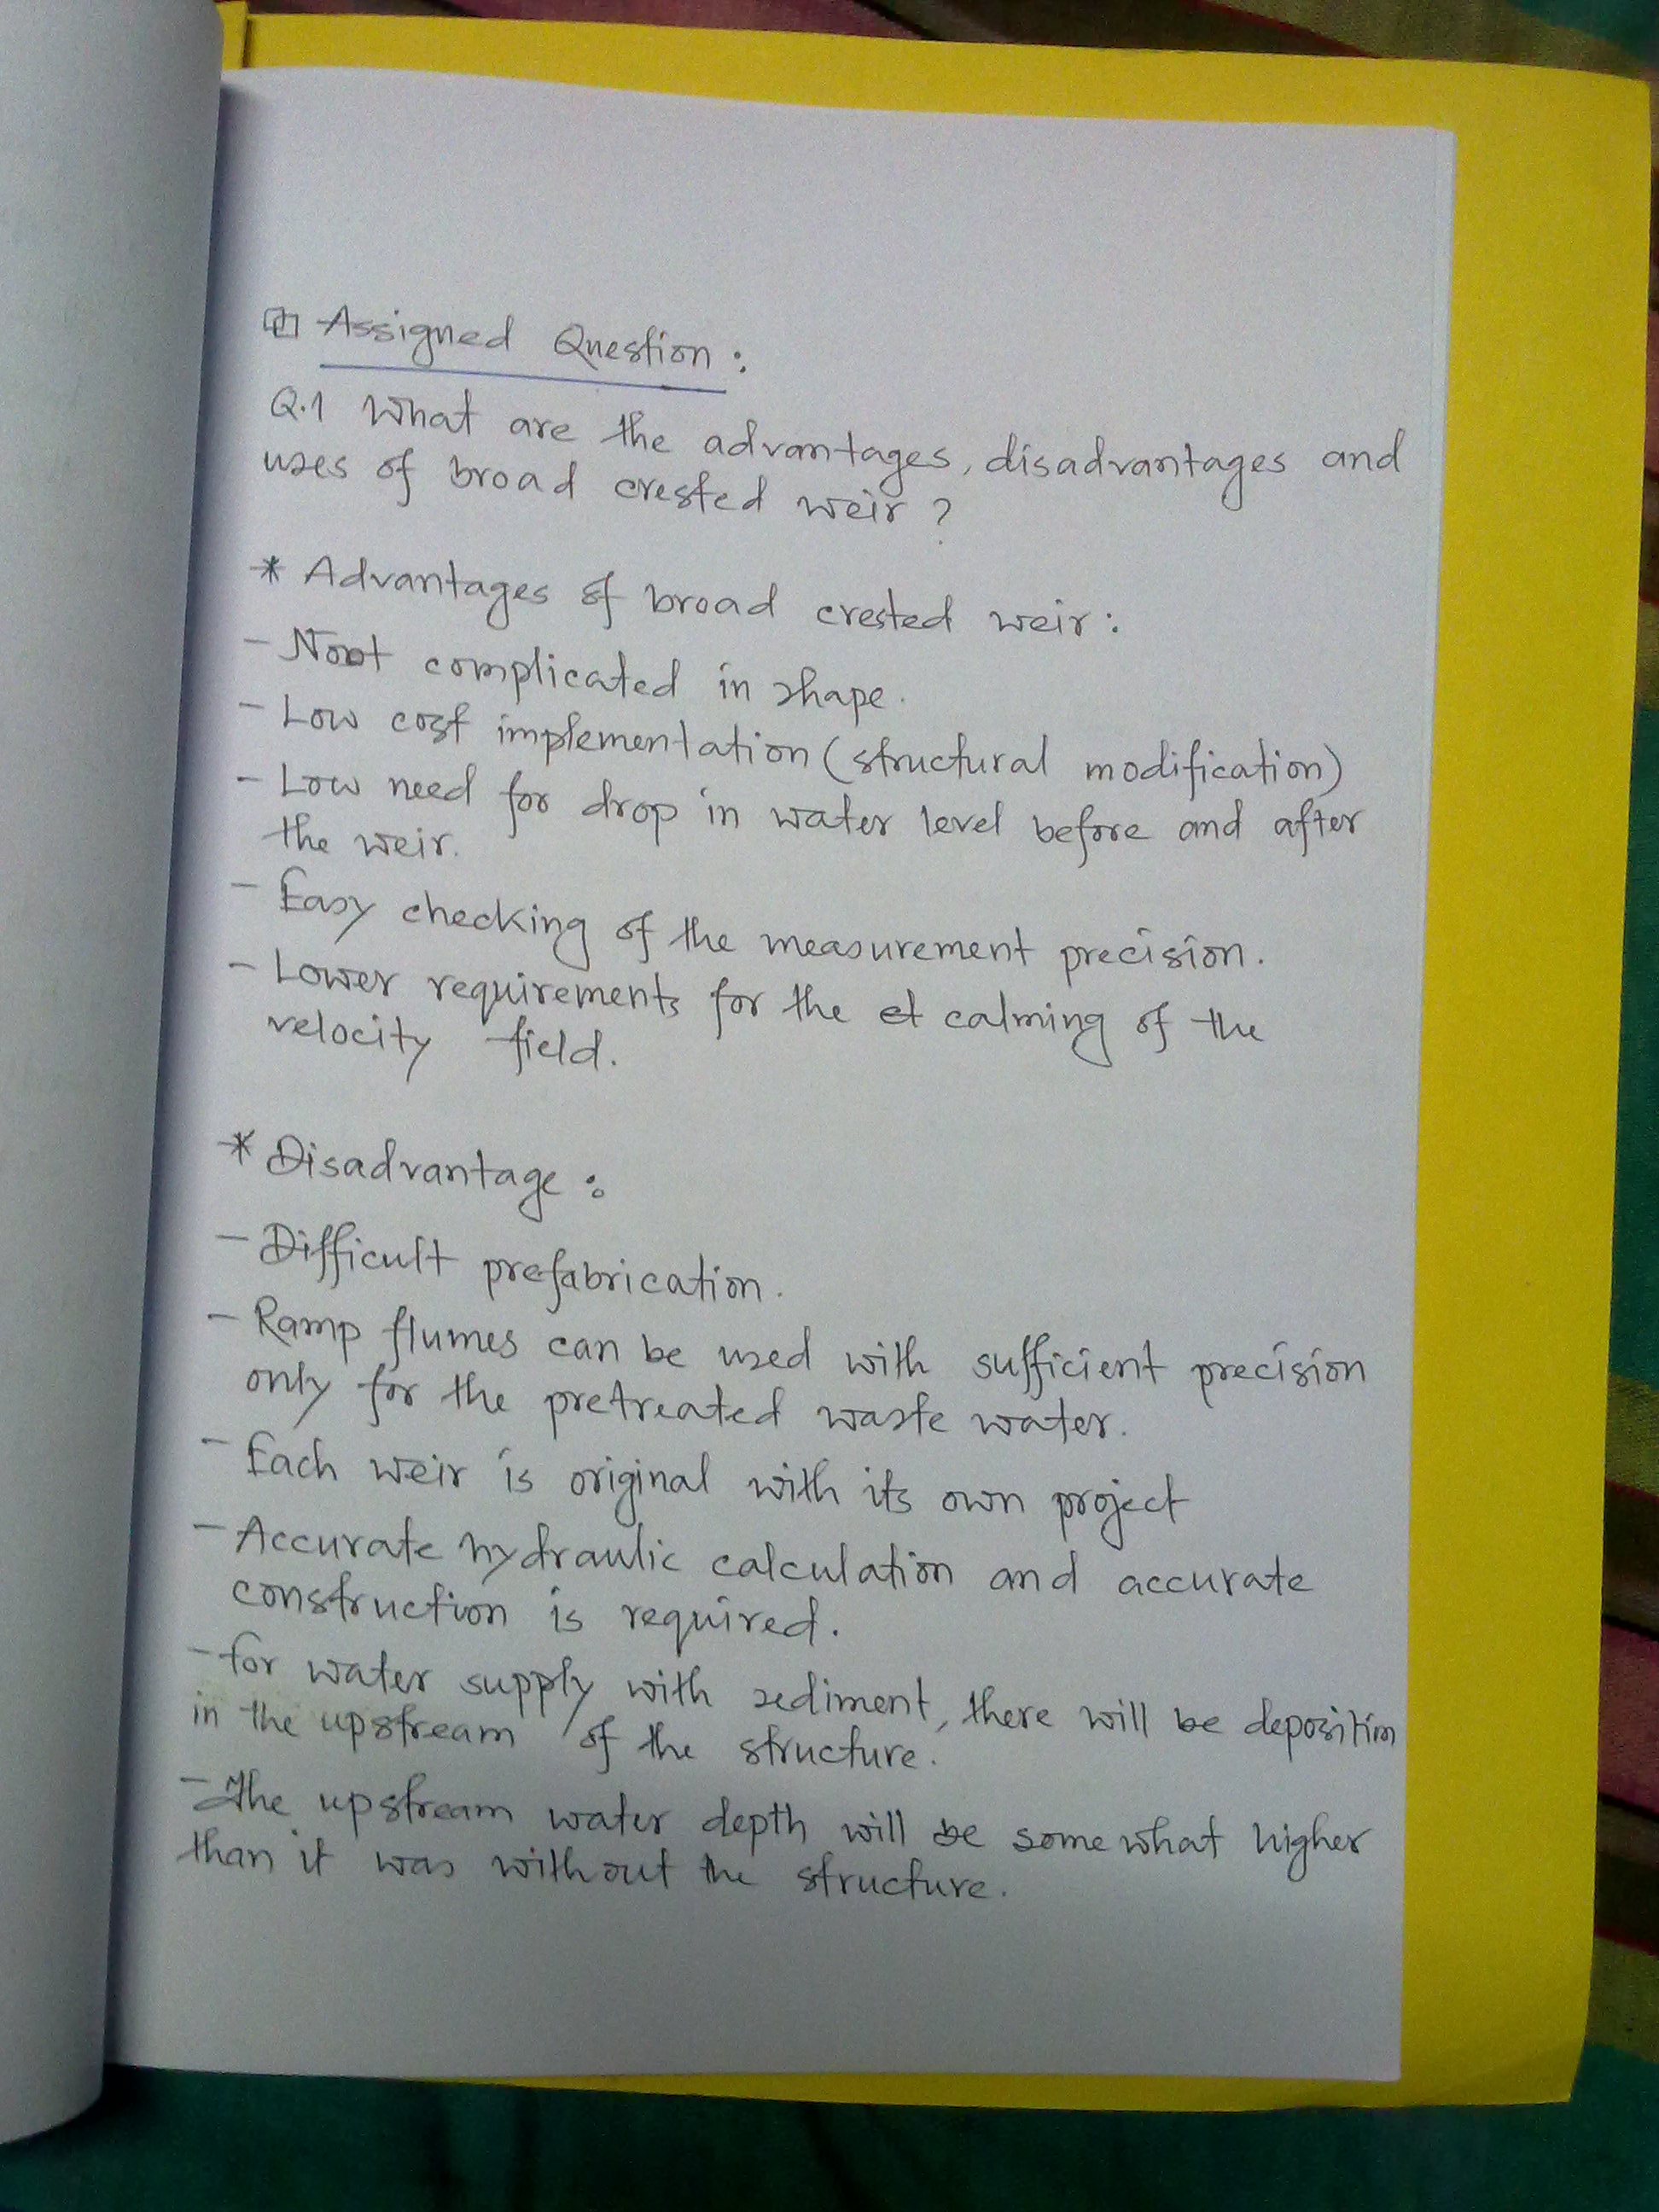 Assigned Question :
Q.1 What are the advantages, disadvantages and
uses of broad crested weir ?
* Advantages of broad crested weir :
- Not complicated in shape.
- Low cost implementation (structural modification)
- Low need for drop in water level before and after
the weir.
- Easy checking of the measurement precision.
- Lower requirements for the calming of the
velocity field.
* Disadvantage :
- Difficult prefabrication.
- Ramp flumes can be used with sufficient precision
only for the pretreated waste water.
- Each weir is original with its own project
- Accurate hydraulic calculation and accurate
construction is required.
- for water supply with sediment, there will be deposition
in the upstream of the structure.
- The upstream water depth will be some what higher
than it was without the structure.